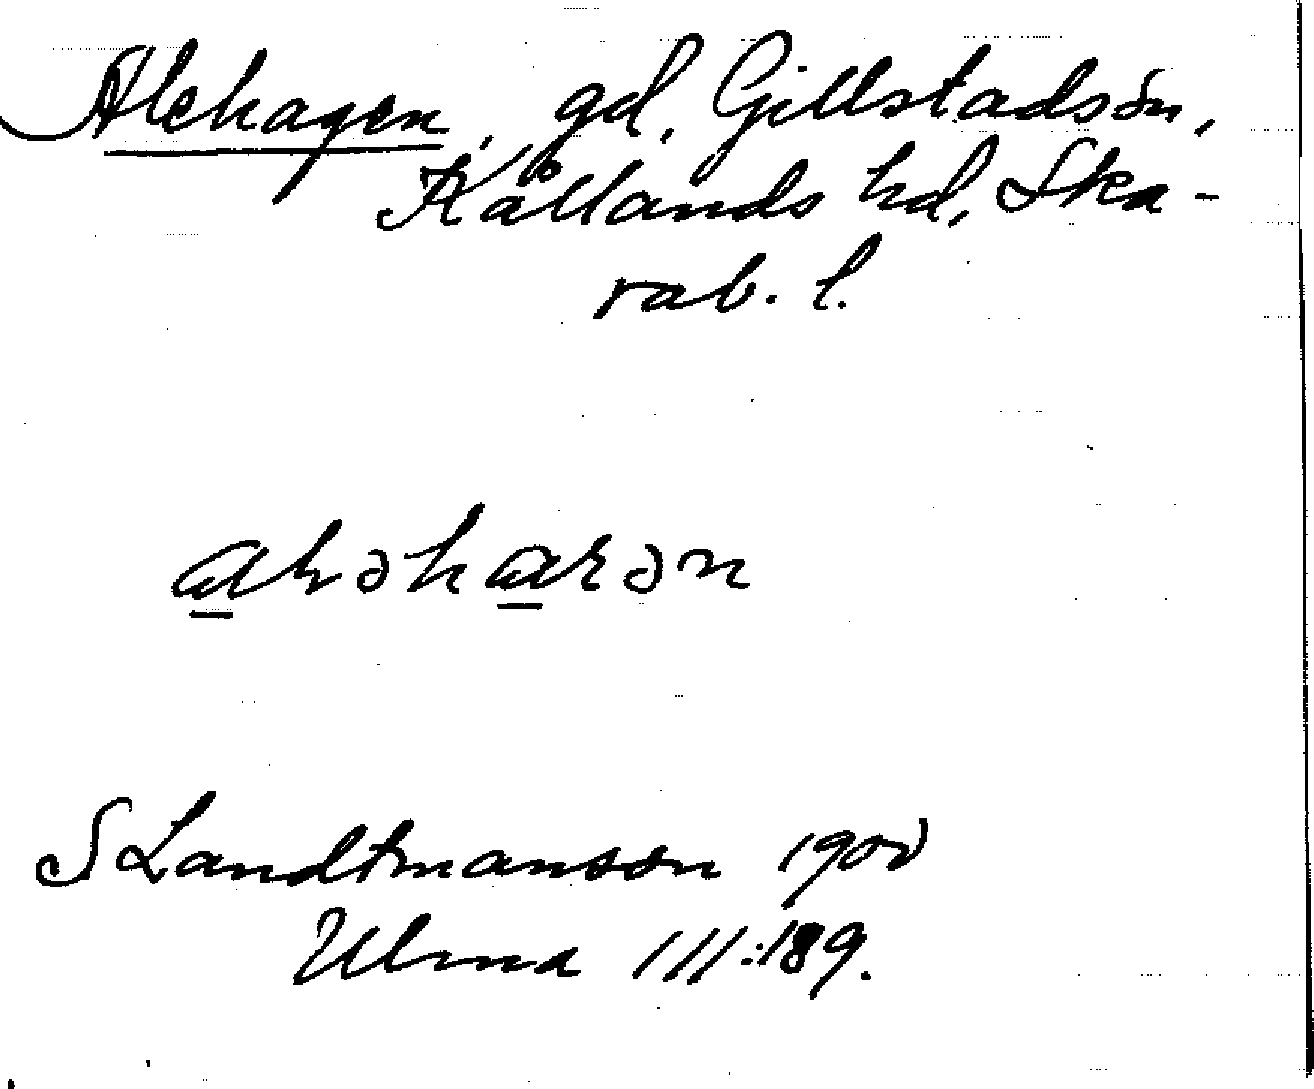 Alehagen, gd, Gillstadsön,
Kållands hd, Ska-
rab. l.
S Landtmanson 1900
Ulma 111:189.